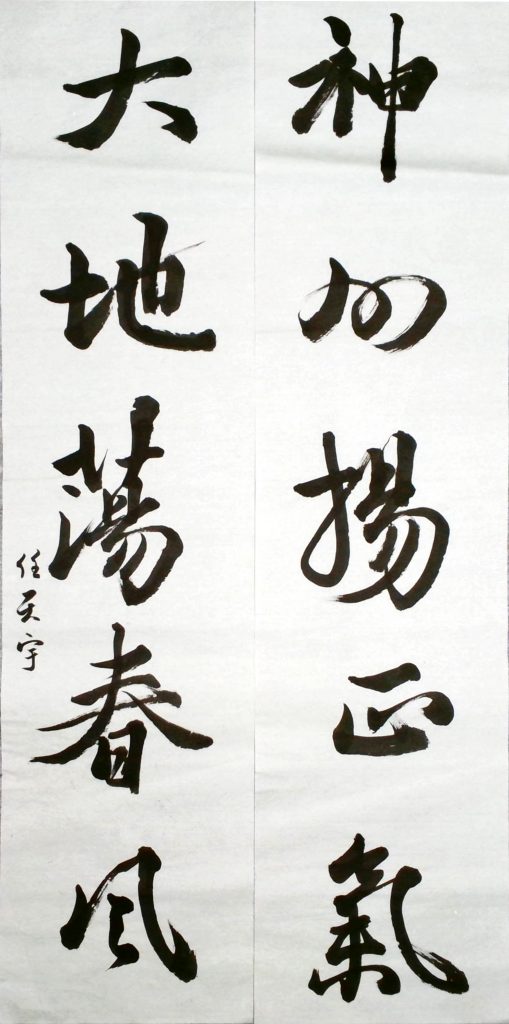 神州揚正氣
大地蕩春风
任天宇